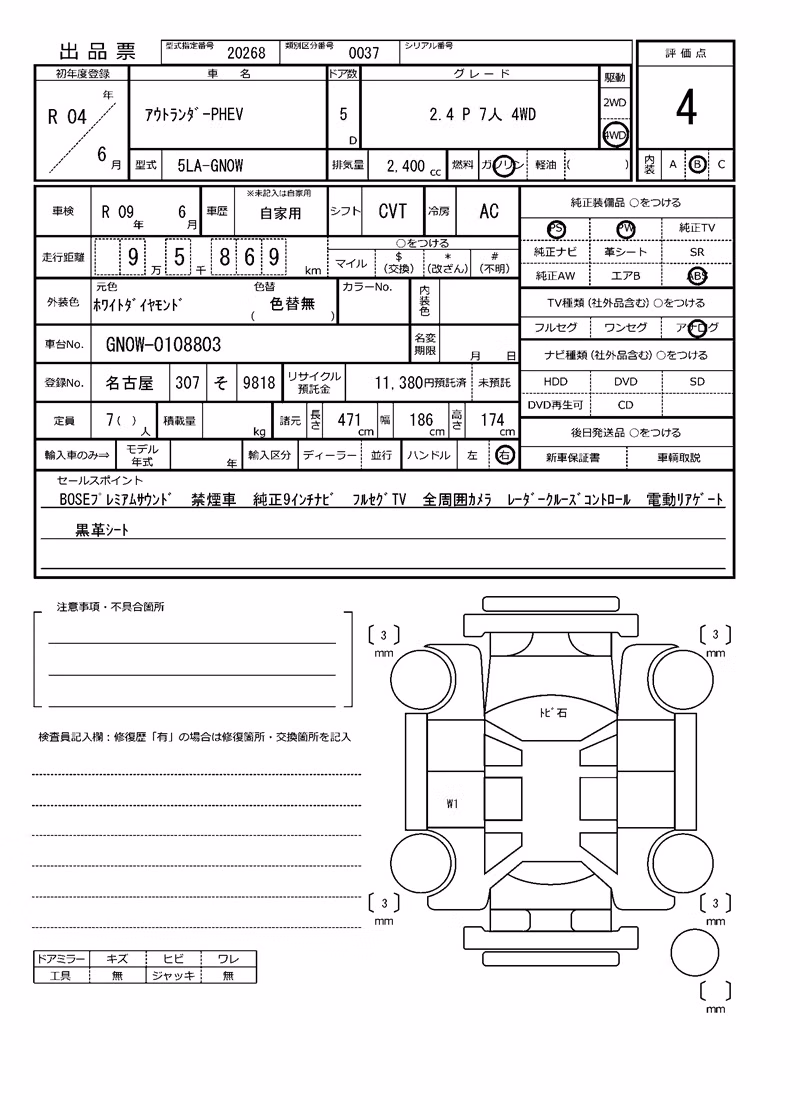 出品票 型式指定番号 20268 類別区分番号 0037 シリアル番号
評価点
初年度登録 車名 ドア数 グレード 駆動
R 04 年 6 月 アウトランダ-PHEV 5 D 2.4 P 7人 4WD 2WD 4WD 4
型式 5LA-GN0W 排気量 2,400 cc 燃料 ガソリン 軽油 ( ) 内装 A B C
車検 R 09 年 6 月 車歴 ※未記入は自家用 自家用 シフト CVT 冷房 AC
純正装備品 ○をつける
PS PW 純正TV
走行距離 9 万 5 千 8 6 9 km ○をつける
マイル $ (交換) * (改ざん) # (不明)
純正ナビ 革シート SR
純正AW エアB ABS
外装色 元色 ホワイトダイヤモンド 色替 ( 色替無 ) カラーNo. 内装色
TV種類 (社外品含む) ○をつける
フルセグ ワンセグ アナログ
車台No. GN0W-0108803 名変期限 月 日
ナビ種類 (社外品含む) ○をつける
登録No. 名古屋 307 そ 9818 リサイクル預託金 11,380円預託済 未預託
HDD DVD SD
DVD再生可 CD
定員 7( ) 人 積載量 kg 諸元 長さ 471 cm 幅 186 cm 高さ 174 cm
後日発送品 ○をつける
輸入車のみ⇒ モデル年式 年 輸入区分 ディーラー 並行 ハンドル 左 右
新車保証書 車輌取説
セールスポイント
BOSEプレミアムサウンド 禁煙車 純正9インチナビ フルセグTV 全周囲カメラ レーダークルーズコントロール 電動リアゲート
黒革シート
注意事項・不具合箇所
検査員記入欄:修復歴「有」の場合は修復箇所・交換箇所を記入
ドアミラー キズ ヒビ ワレ
工具 無 ジャッキ 無
〔 3 〕 mm
〔 3 〕 mm
トビ石
W1
〔 3 〕 mm
〔 3 〕 mm
〔 〕 mm